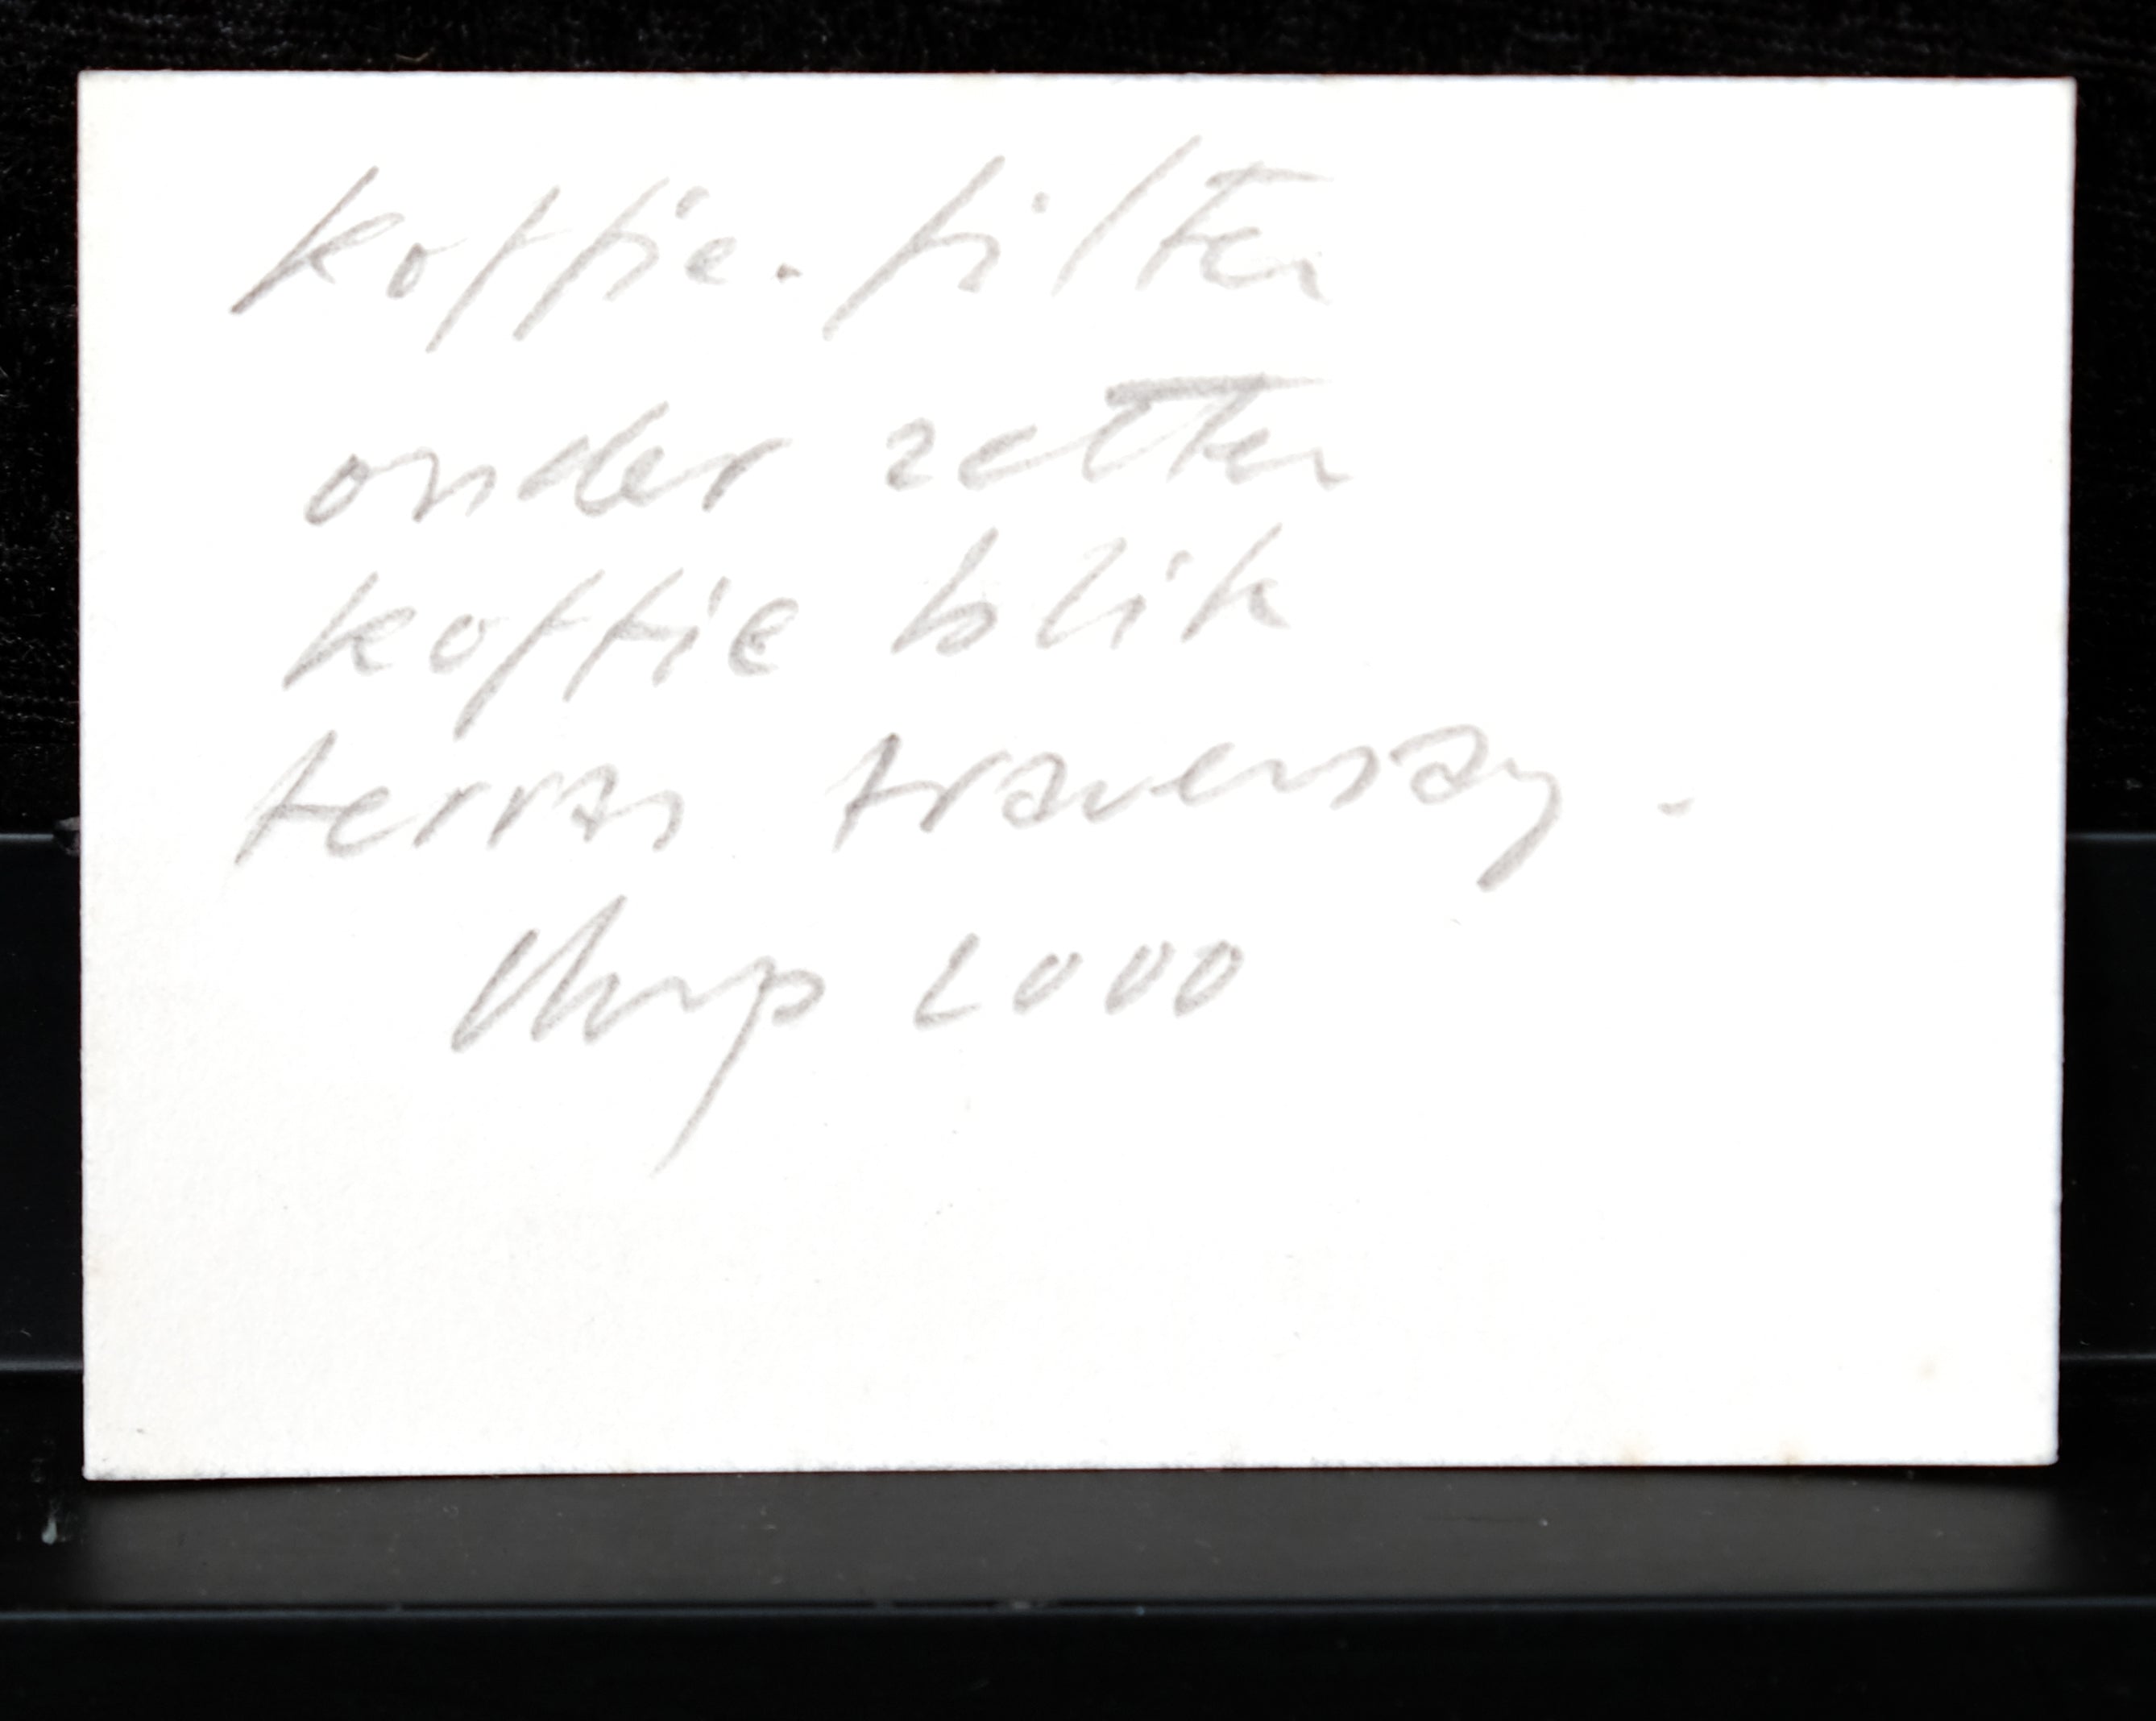 koffie-filter
onder zetter
koffie blik
terras traversay.
2000